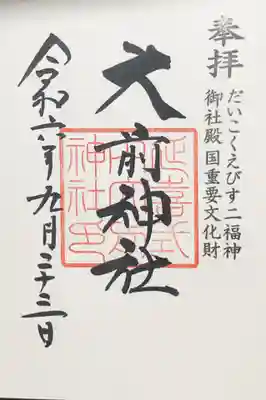 奉拝
だいこくえびす二福神
御社殿国重要文化財
大前神社
延喜式
神社印
令和六年九月二十三日